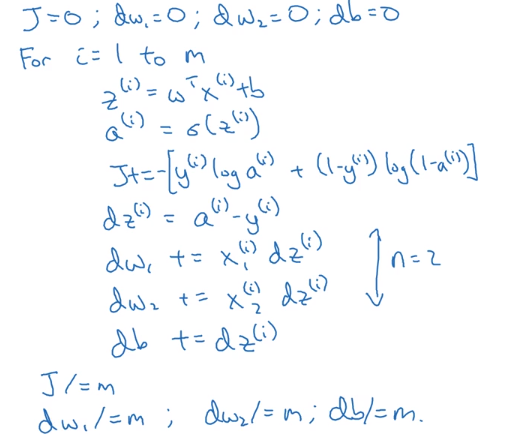 J=0 ; dw₁=0 ; dw₂=0 ; db=0
For i=1 to m
z⁽ⁱ⁾ = ωᵀx⁽ⁱ⁾+b
a⁽ⁱ⁾ = σ(z⁽ⁱ⁾)
J+=-[y⁽ⁱ⁾ log a⁽ⁱ⁾ + (1-y⁽ⁱ⁾) log(1-a⁽ⁱ⁾)]
dz⁽ⁱ⁾ = a⁽ⁱ⁾-y⁽ⁱ⁾
dw₁ += x₁⁽ⁱ⁾ dz⁽ⁱ⁾
dw₂ += x₂⁽ⁱ⁾ dz⁽ⁱ⁾
n=2
db += dz⁽ⁱ⁾
J/=m
dw₁/=m ; dw₂/=m ; db/=m.